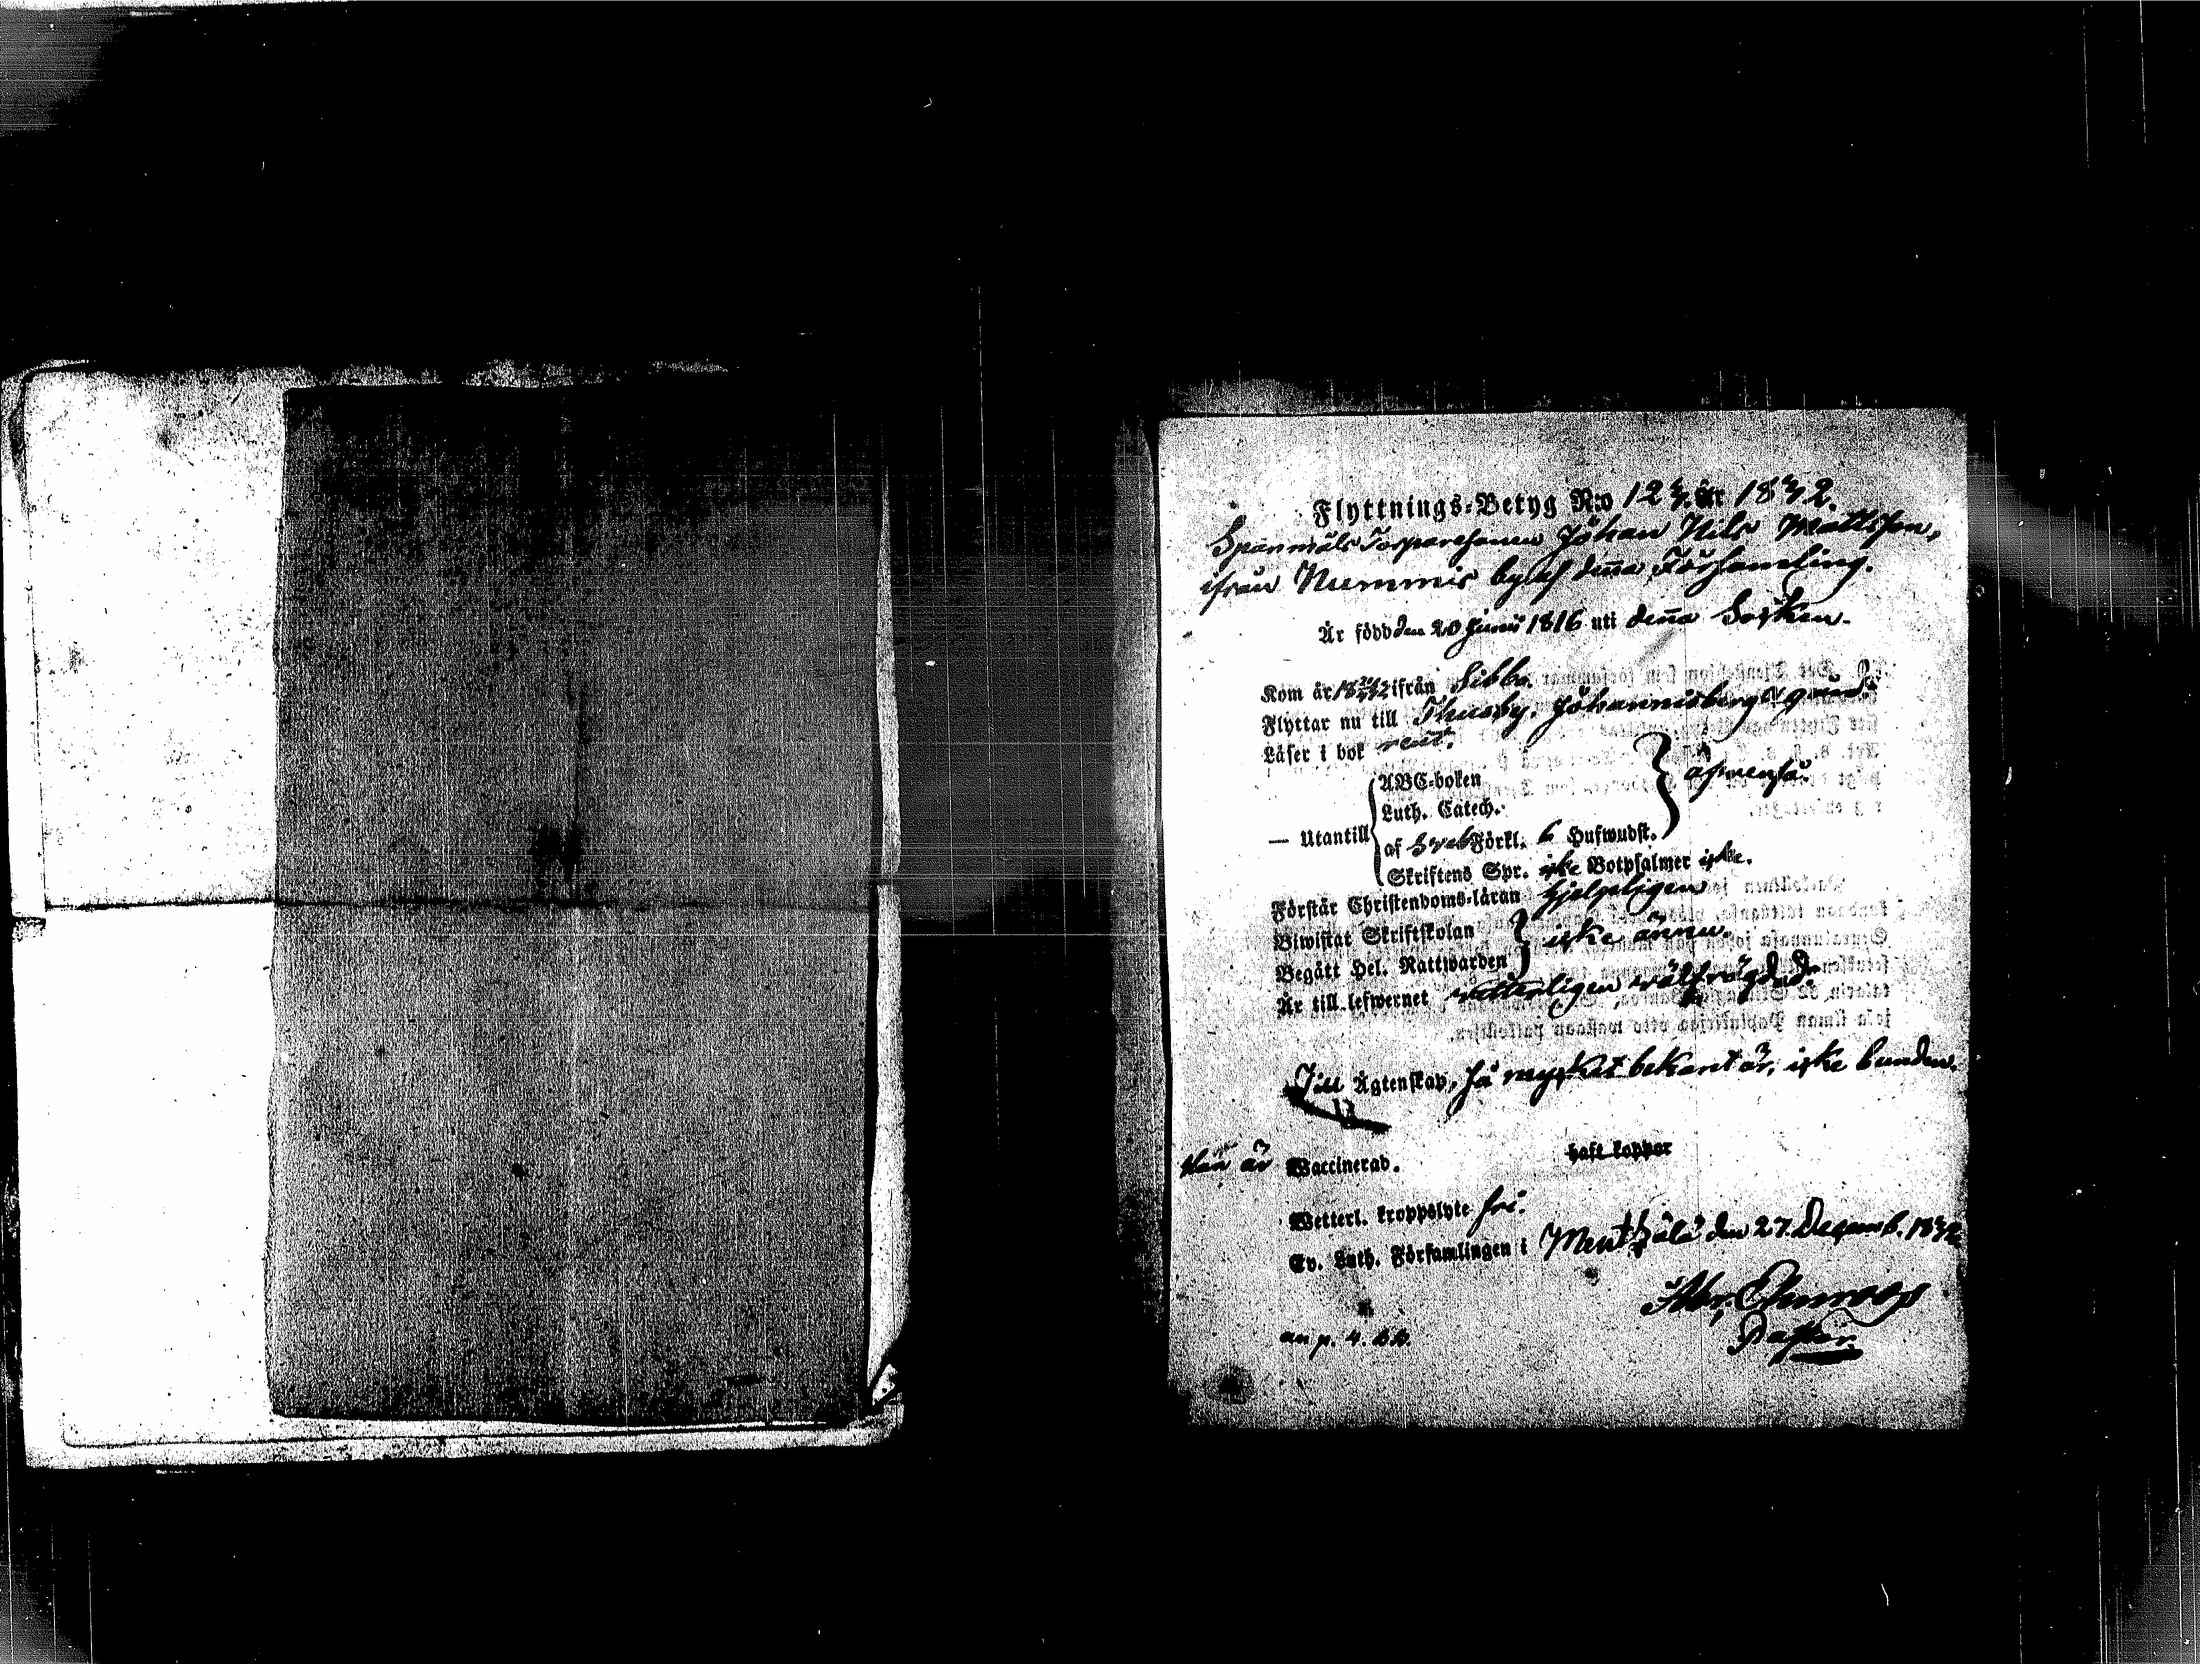 Flyttnings-Betyg N:o 124. år 1842.
Spänmäls Torparesonen Johan Nils Mattsson,
ifrån Nummis by af denna Församling.
Är född den 20 Junii 1816 uti denna Socken.
Kom år 1842 ifrån Sibbo.
Flyttar nu till Thusby, Johannisbergs gränd.
Läser i bok rent.
ABC-boken
Luth. Catech.
— Utantill
af Sveb Förkl. 6 Hufwudst.
äfwenså.
Skriftens Spr. icke Botpsalmer icke.
Förstår Christendoms-läran hjelpligen
Biwistat Skriftskolan
Begått Hel. Nattwarden
icke ännu.
Är till lefwernet wetterligen wälfrägdad.
Till Ägtenskap, så mycket bekant är, icke bunden.
Han är Waccinerad. haft koppor
Wetterl. kroppslyte fri.
Ev. Luth. Församlingen i Mentsälä den 27. Decemb. 1842
Pastor.
an p. 4.